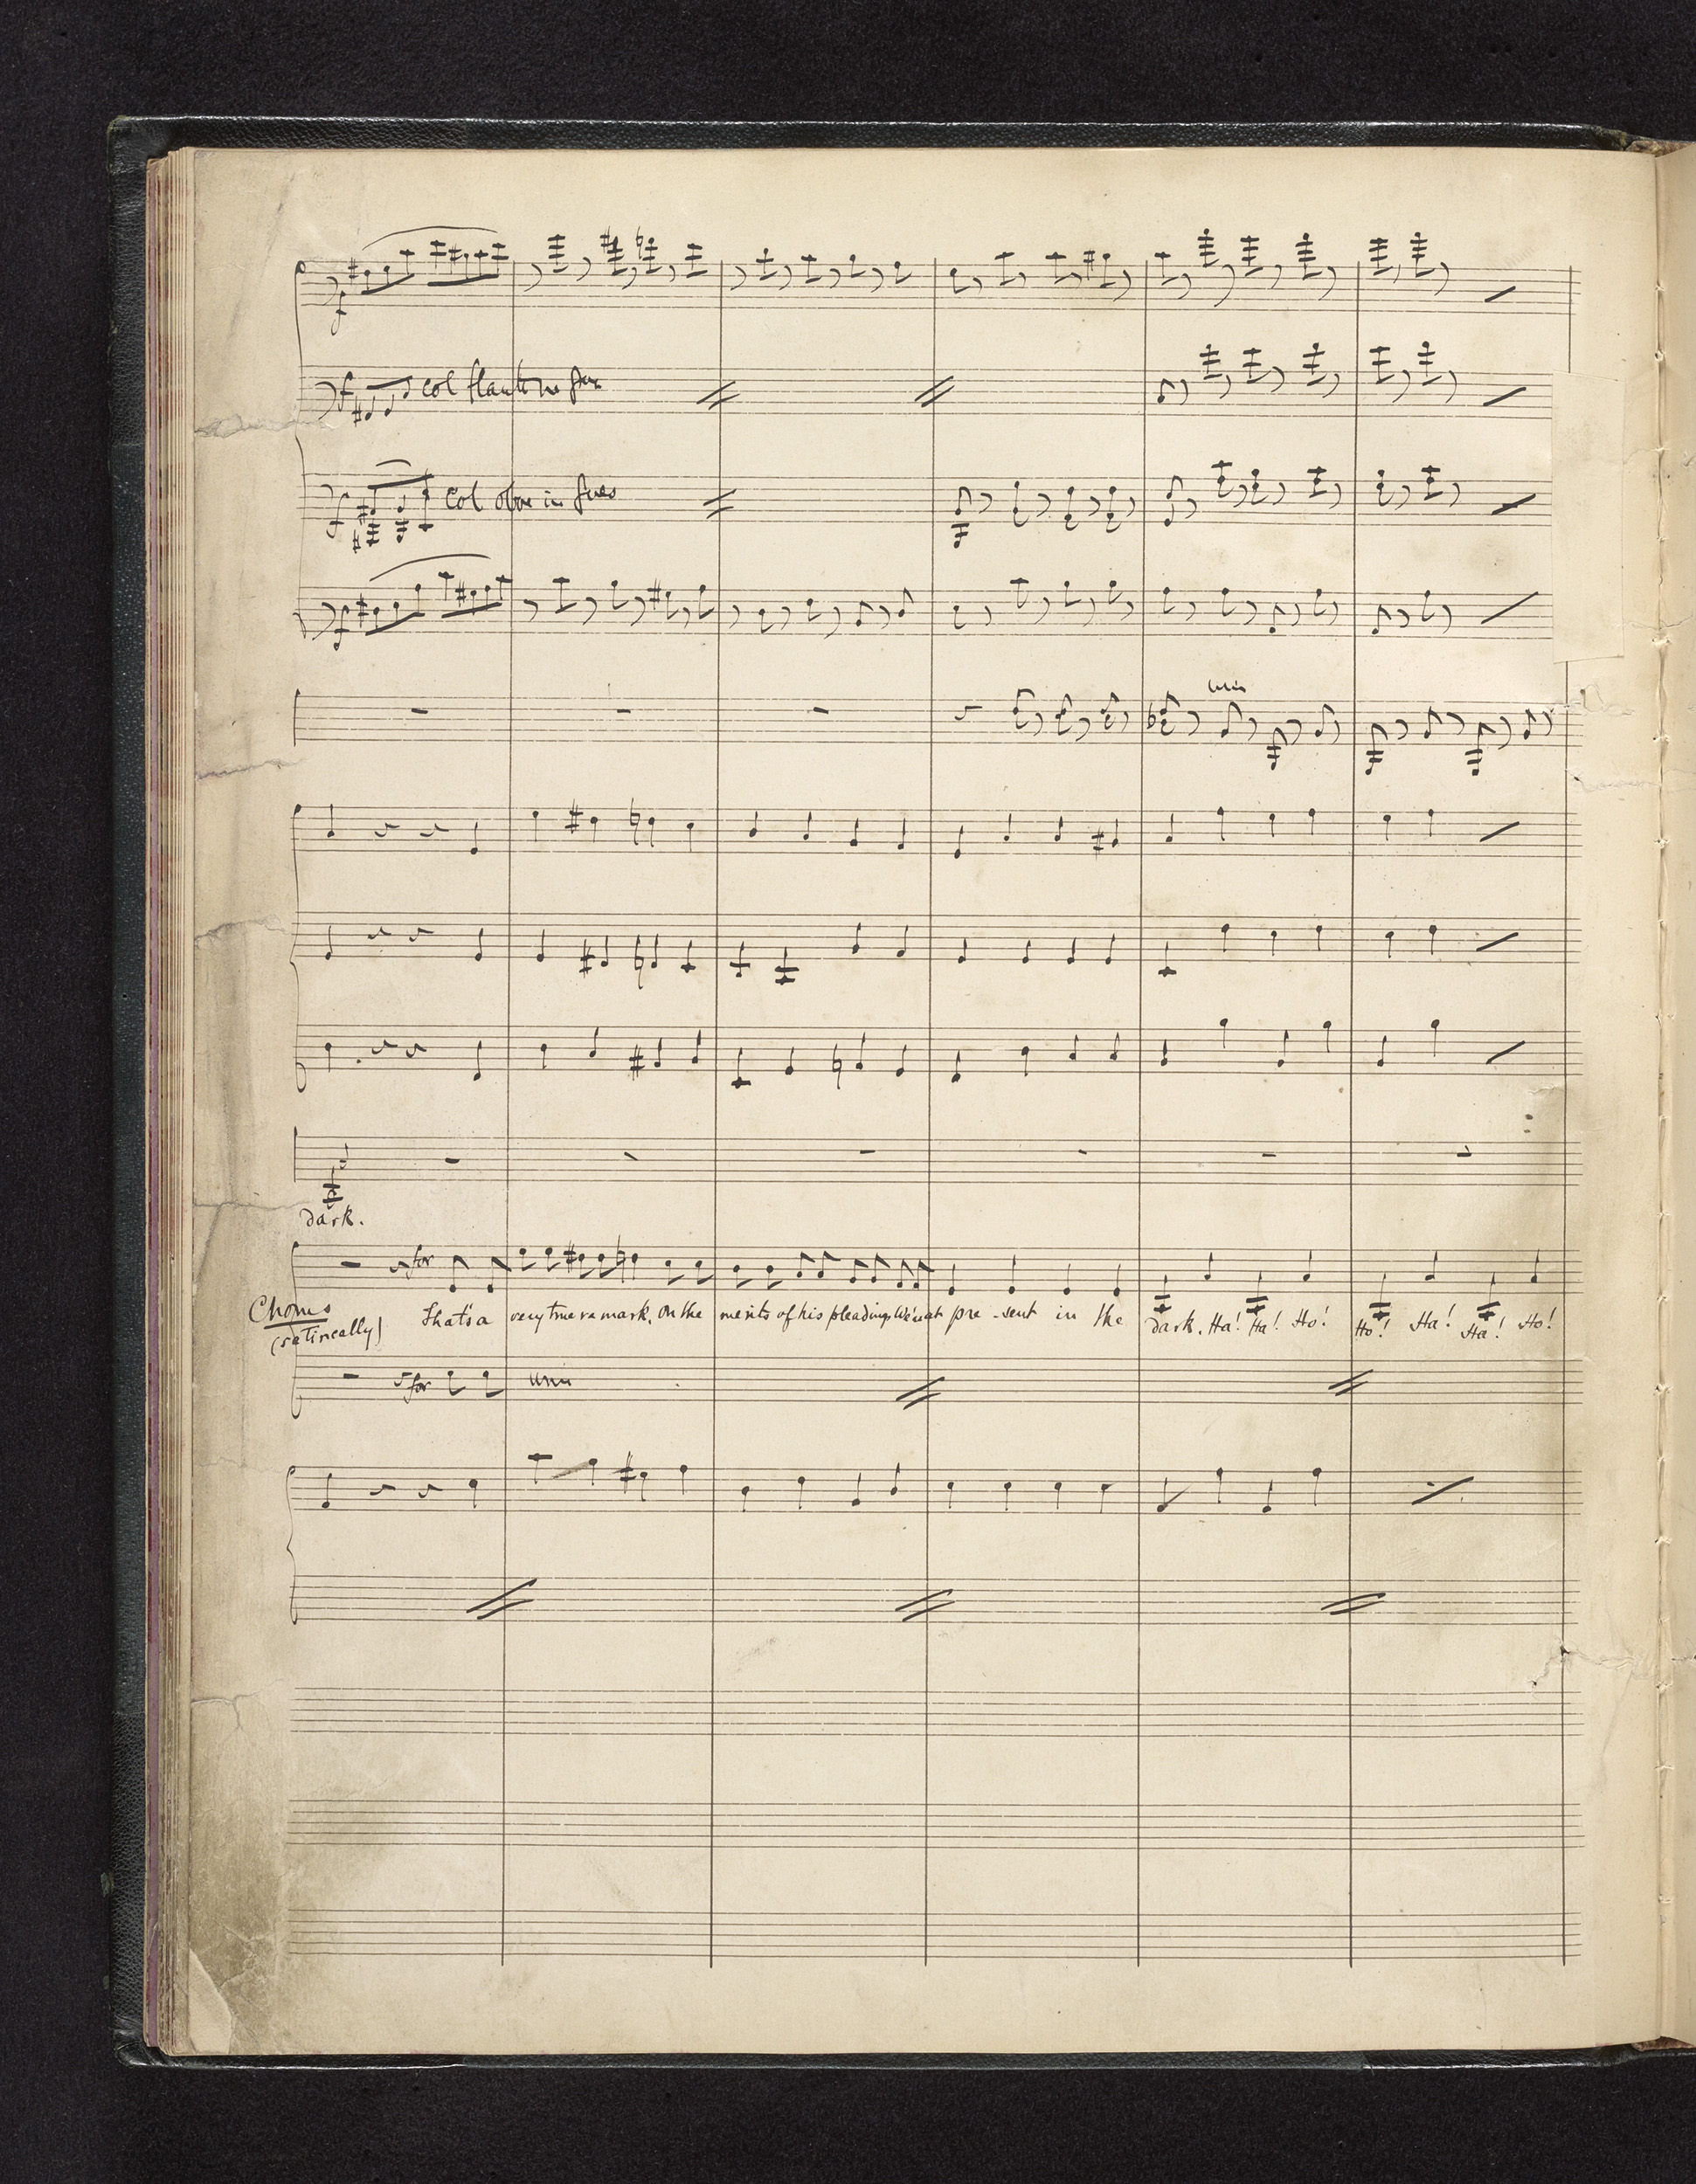 f
f col flauto in 8va
f col oboe in 8va
f
unis
dark.
for
Chorus That's a very true remark, On the merits of his pleadings We're at pre-sent in the dark. Ha! Ha! Ho! Ho! Ha! Ha! Ho!
(satirically)
for unis